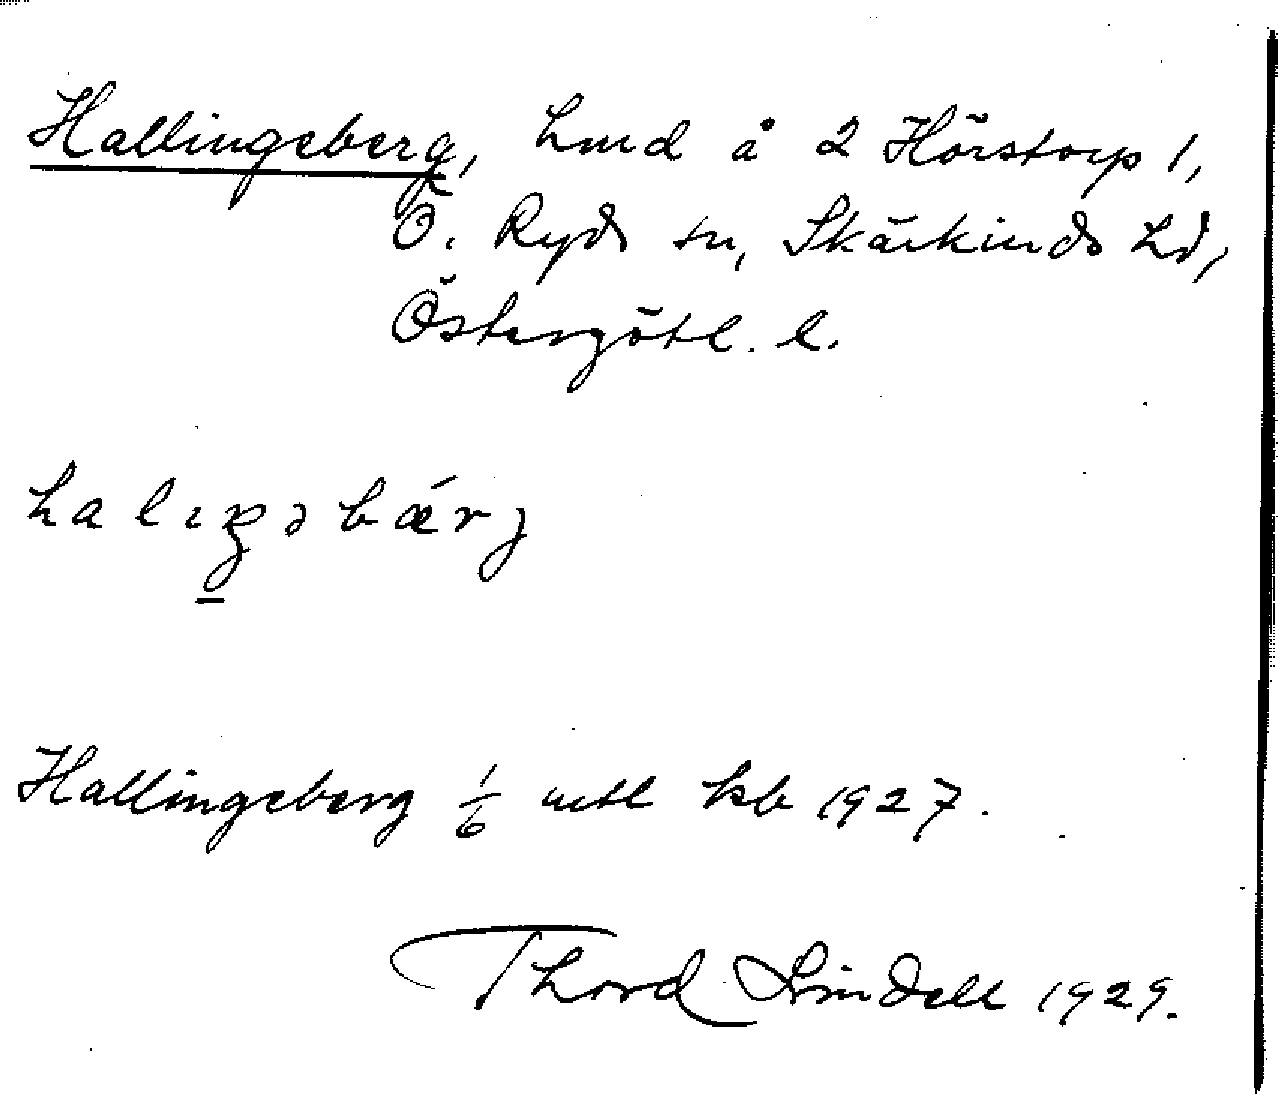 Hallingeberg, hmd å 2 Hörstorp 1,
Ö. Ryds sn, Skärkinds hd,
Östergötl. l.
halıŋəbǽrj
Hallingeberg 1/6 mtl kb 1927.
Thord Lindell 1929.